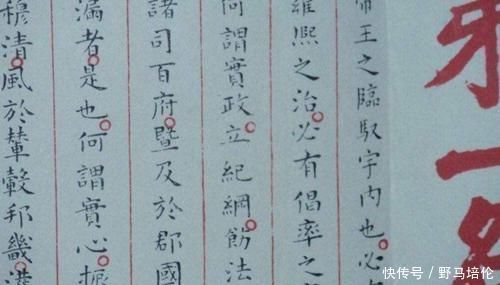 第一
帝王之臨馭宇內也必
雍熙之治必有倡率之
何謂實政立紀綱飭法
諸司百府暨及於郡國
漏者是也何謂實心振
穆清風於輦轂邦畿
快传号／野马培伦